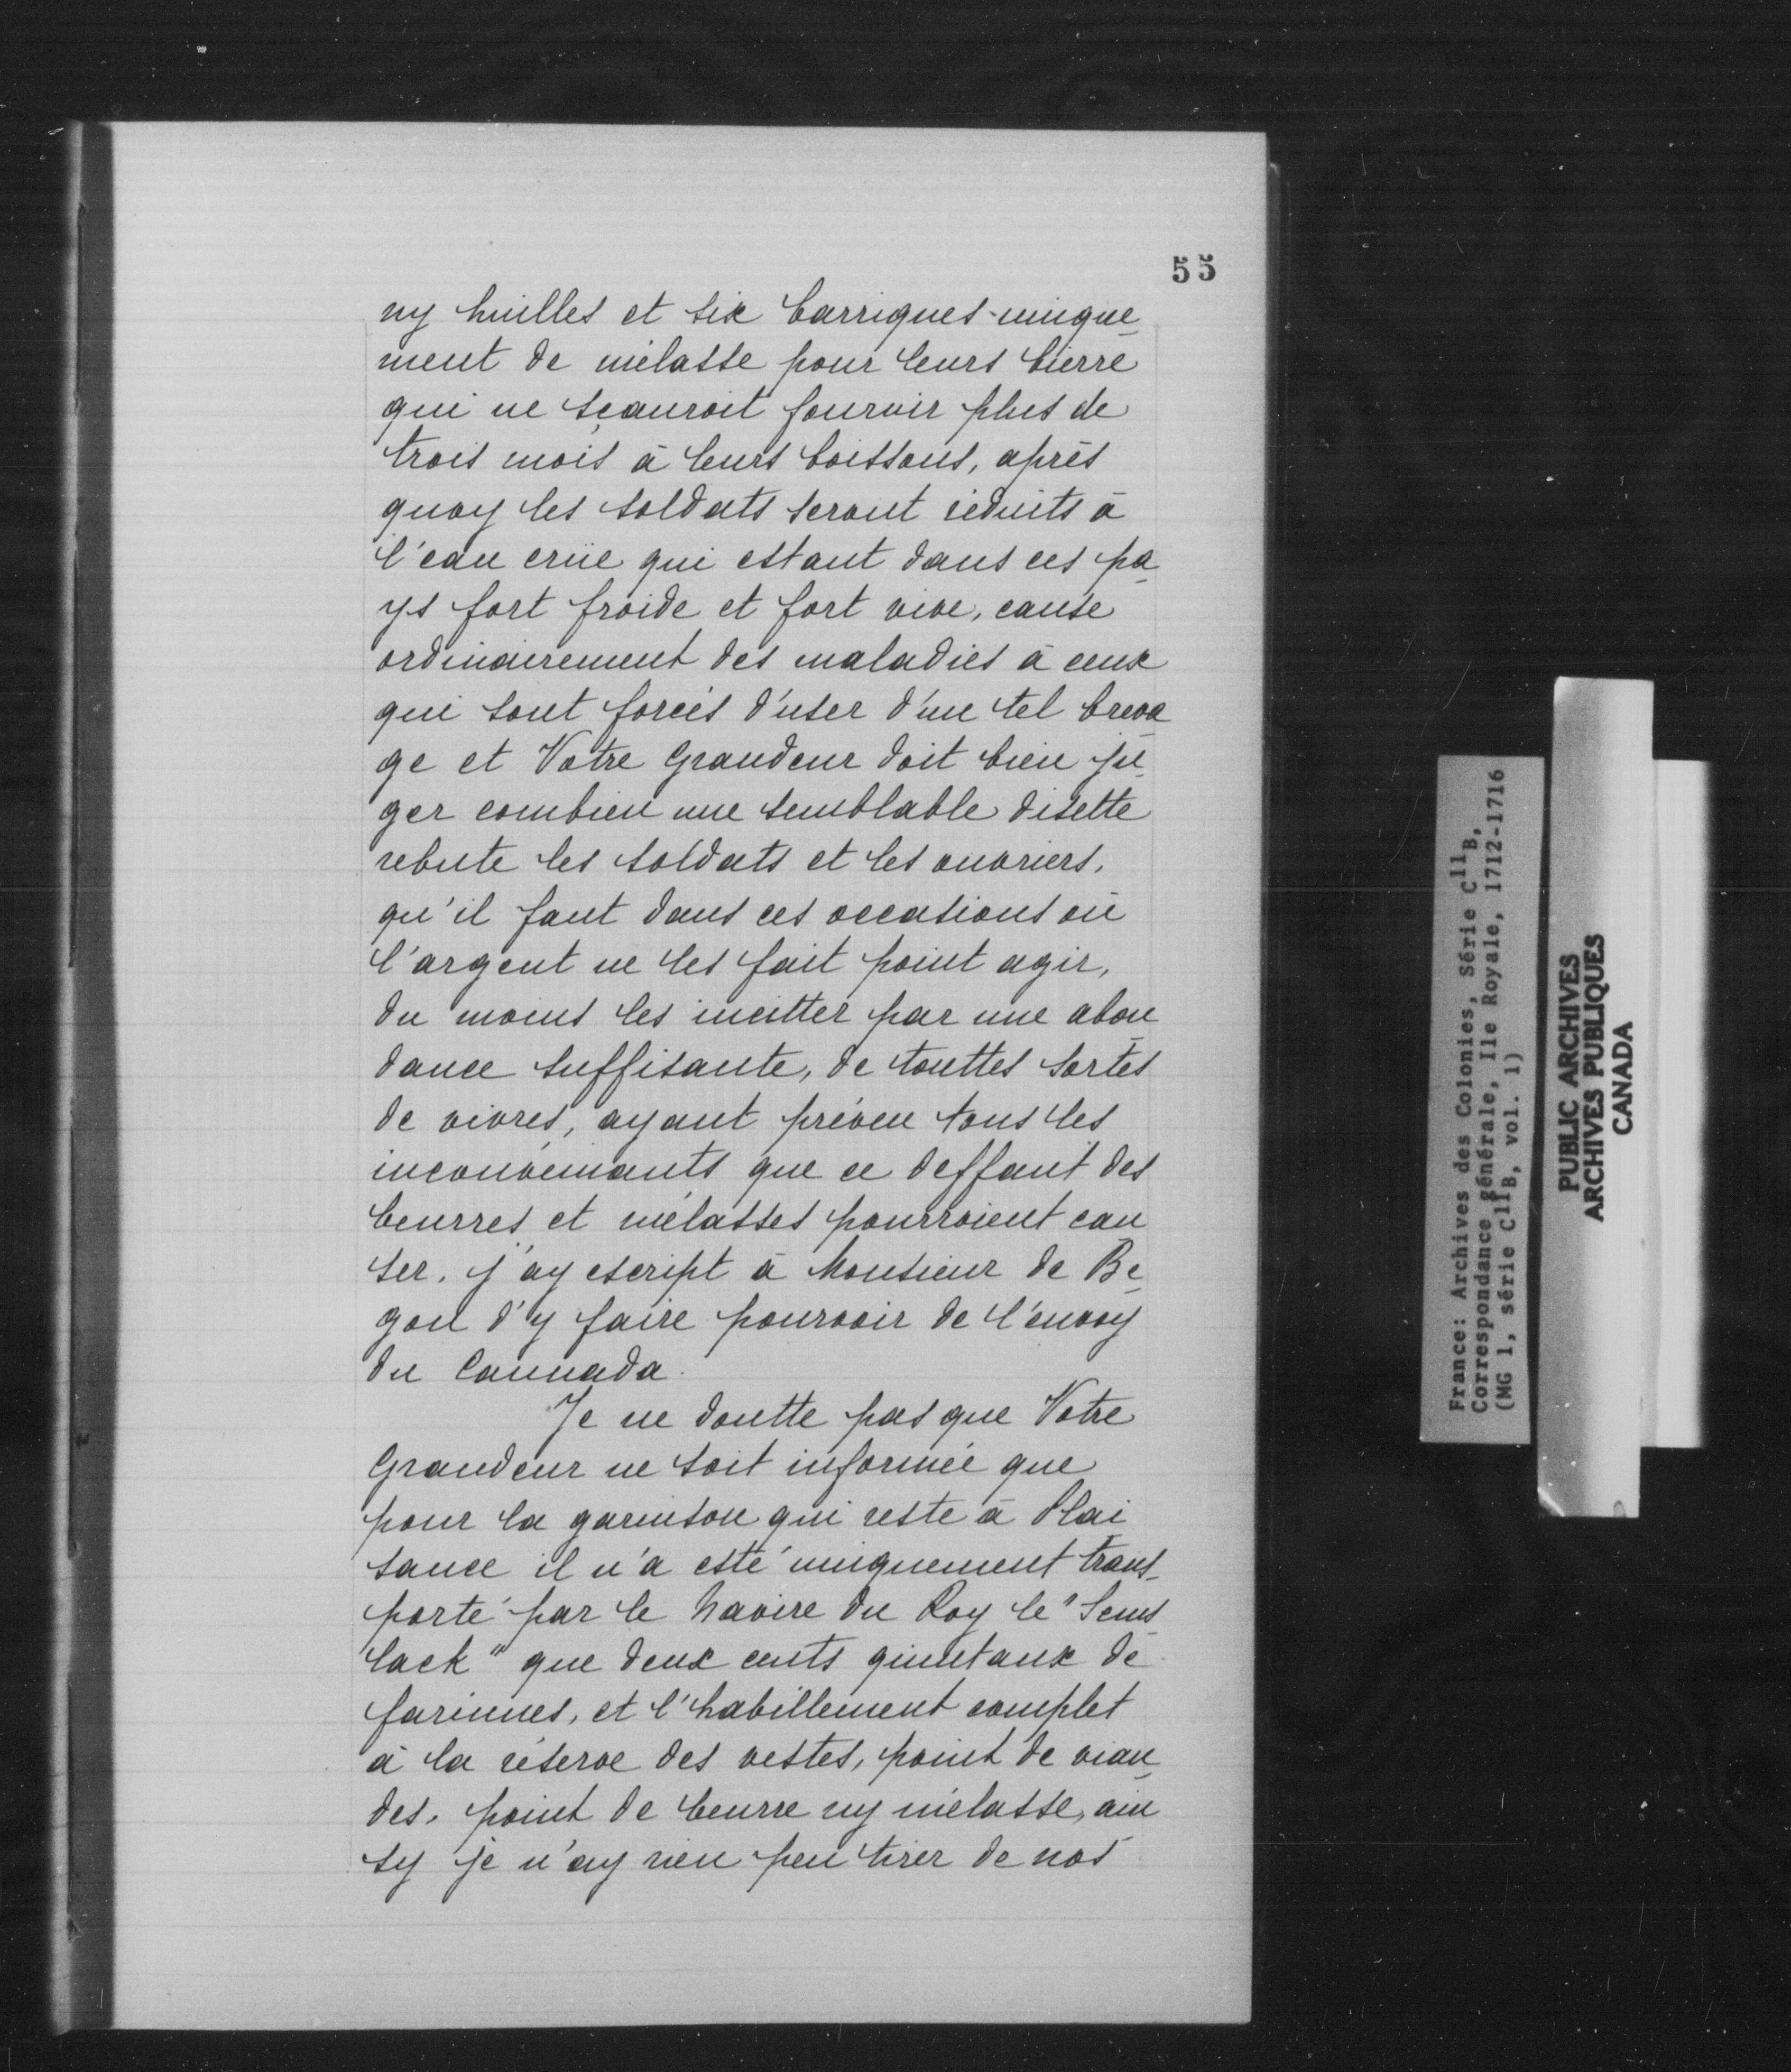 55
ny huilles et six barriques unique_
ment de mélasse pour leurs bierre
qui ne sçauroit fournir plus de
trois mois à leurs boissons, après
quoy les soldats seront réduits à
l'eau crüe qui estant dans ces pa_
ys fort froide et fort vive, cause
ordinairement des maladies à ceux
qui sont forcés d'user d'un tel breva_
ge et Votre Grandeur doit bien ju_
ger combien une semblable disette
rebute les soldats et les ouvriers,
qu'il faut dans ces occasions où
l'argent ne les fait point agir,
du moins les incitter par une abon_
dance suffisante, de touttes sortes
de vivres, ayant préveu tous les
inconvéniants que ce deffaut des
beurres et mélasses pourroient cau
ser, j'ay escript à Monsieur de Be_
gon d'y faire pourvoir de l'envoy
du Cannada.
Je ne doutte pas que Votre
Grandeur ne soit informée que
pour la garnison qui reste à Plai
sance il n'a esté uniquement trans_
porté par le Navire du Roy le "Sems_
lack" que deux cents quintaux de
farinnes, et l'habillement complet
à la réserve des vestes, point de vian_
des, point de beurre ny mélasse, ain
sy je n'ay rien peu tirer de nos
France: Archives des Colonies, Série C11B,
Correspondance générale, Ile Royale, 1712-1716
(MG 1, série C11B, vol. 1)
PUBLIC ARCHIVES
ARCHIVES PUBLIQUES
CANADA